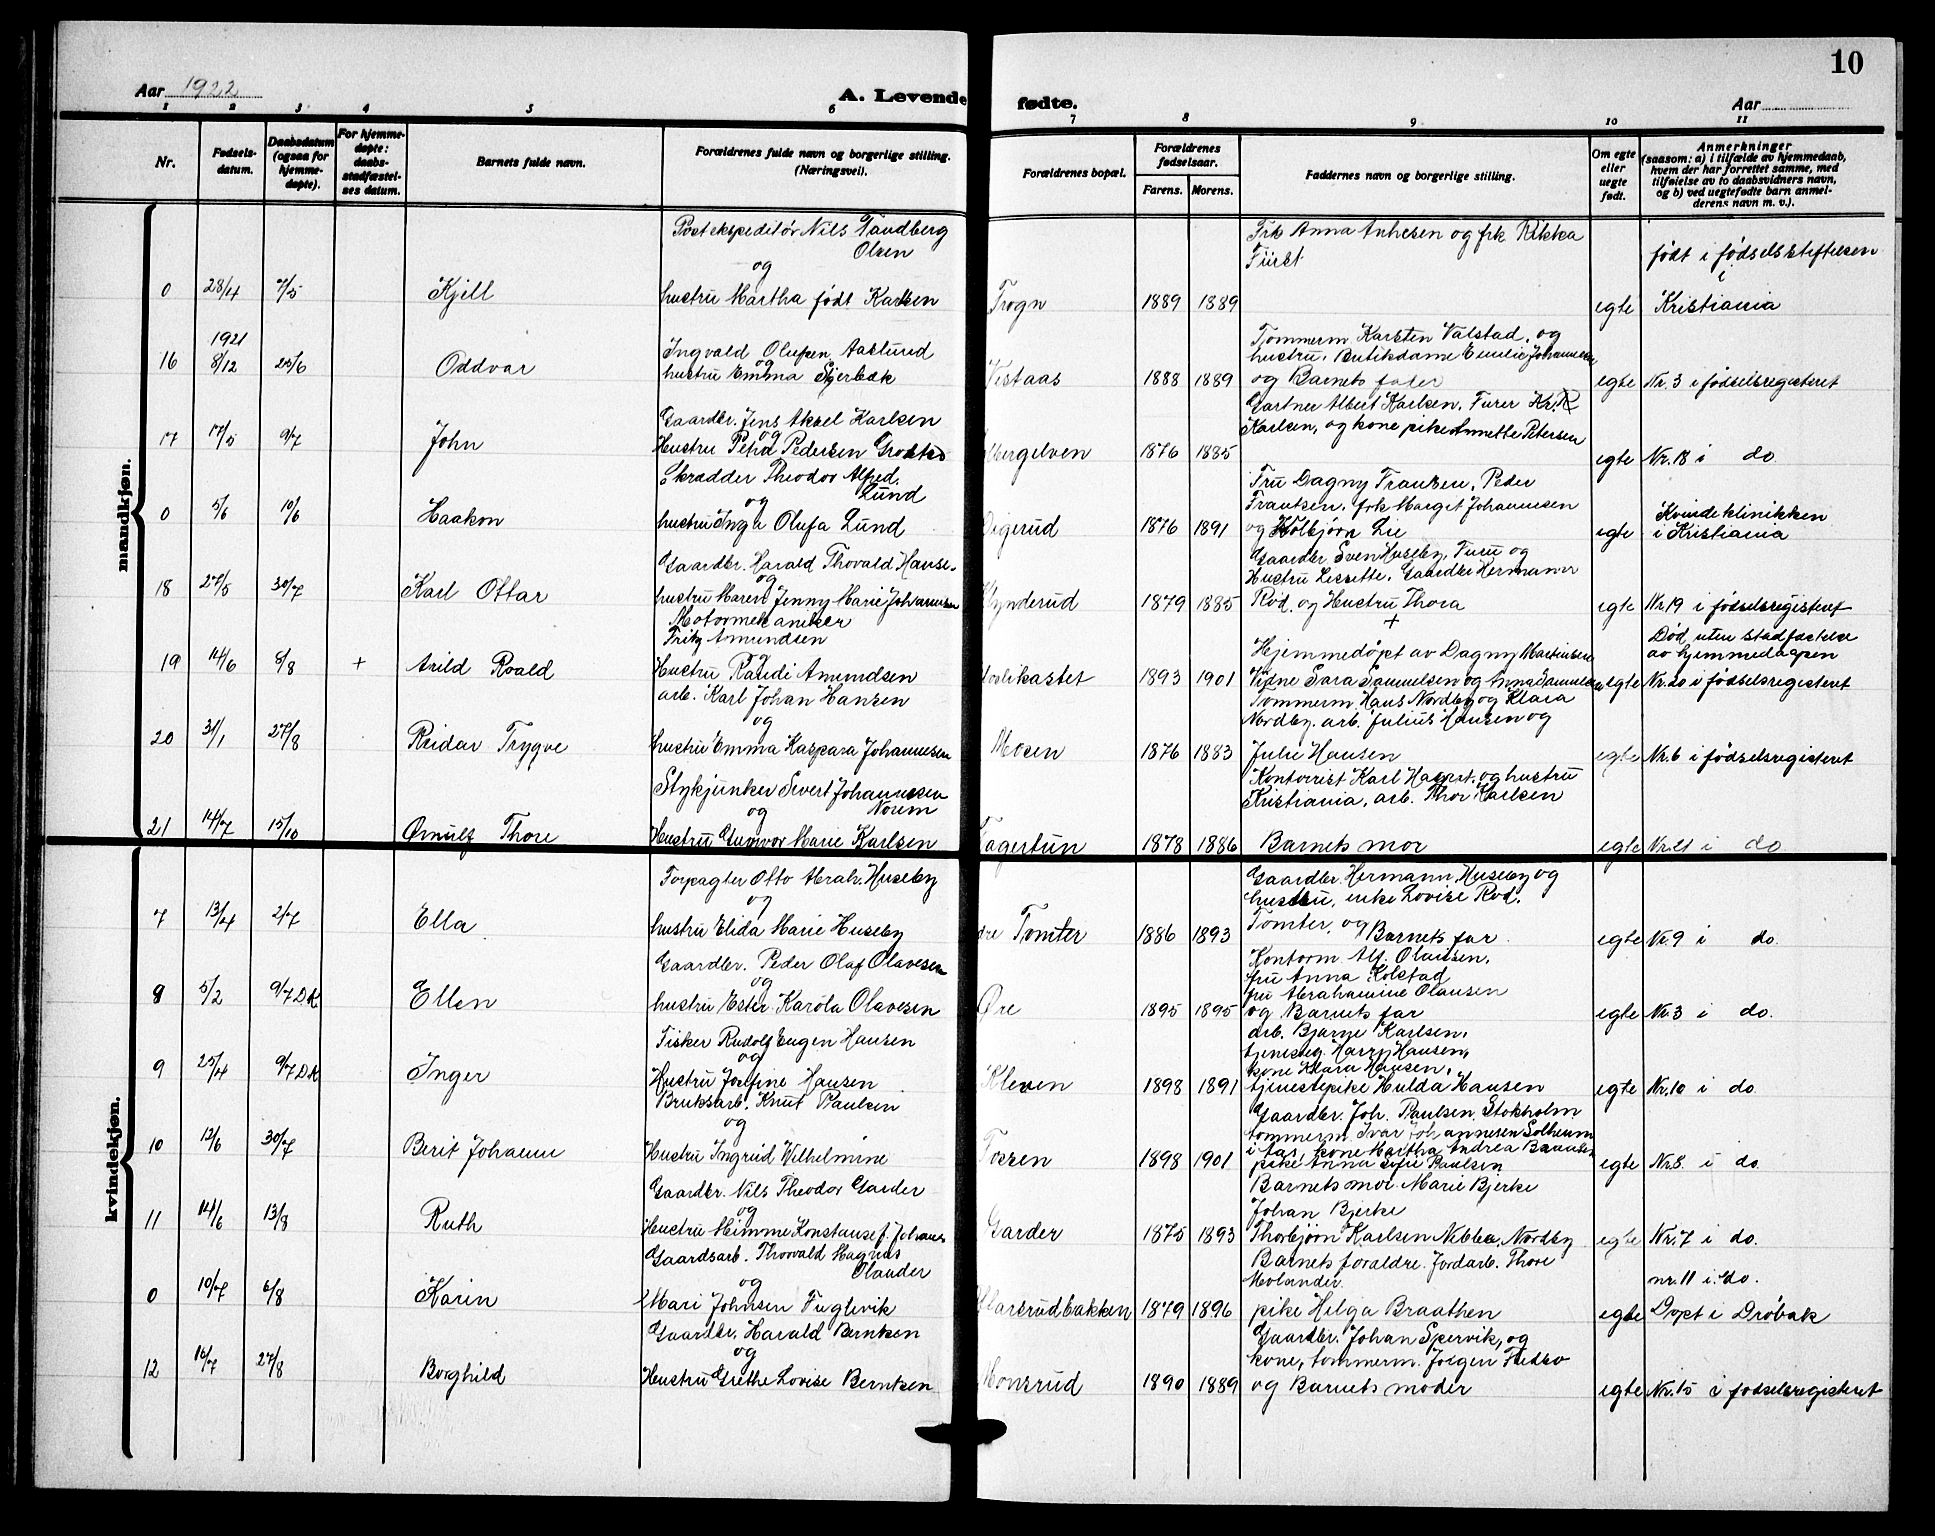 10
Aar 1922
A. Levende fødte.
Aar
1 2 3 4 5 6 7 8 9 10 11
Nr.
Fødsels-
datum.
Daabsdatum
(ogsaa for
hjemme-
døpte).
For hjemme-
døpte:
daabs-
stadfæstel-
ses datum.
Barnets fulde navn.
Forældrenes fulde navn og borgerlige stilling.
(Næringsvei).
Forældrenes bopæl.
Forældrenes
fødselsaar.
Farens. Morens.
Faddernes navn og borgerlige stilling.
Om egte
eller
uegte
født.
Anmerkninger
(saasom: a) i tilfælde av hjemmedaab,
hvem der har forrettet samme, med
tilføielse av to daabsvidners navn,
og b) ved uegtefødte barn anmel-
derens navn m. v.).
mandkjøn.
Postekspeditør Nils Sandberg
Olsen
og
0 28/4 7/5 Kjell hustru Martha født Karlsen
Trogn 1889 1889
Frk Anna Anhesen og frk Rikka
Fürst
egte
født i fødselsstiftelsen
i
Kristiania
1921
16 8/12 25/6 Oddvar
Ingvald Olufsen Aaslund
og
hustru Emma Skjerbæk
Vestaas 1888 1889
Tømmerm Karsten Valstad, og
hustru. Butikdame Emilie Johannesen
og Barnets fader
egte Nr. 3 i fødselsregisteret
17 17/5 9/7 John
Gaardbr. Jens Aksel Karlsen
og
Hustru Petra Pedersen
bergelven 1876 1885
Gartner Albert Karlsen, Furer Kr. R
Karlsen, og kone pike Annette Petersen
egte Nr. 18 i do
0 5/6 10/6 Haakon
Skrædder Theodor Alfred
Lund
og
hustru Inga Olufa Lund
Digerud 1876 1891
Fru Dagny Frantzen, Peder
Frantzen, frk Marget Johannesen
og Kolbjørn Lie
egte
Kvindeklinikken
i Kristiania
18 27/5 30/7 Karl Ottar
Gaardbr. Harald Thovald Hanse-
og
hustru Maren Jenny Marie Johannesen
ynderud 1879 1885
Gaardbr Sven Huseby, Furu og
Hustru Lissette. Gaardbr Hermaner
Rød. og Hustru Thora
egte Nr. 19 i fødselsregisteret
19 14/6 8/8 + Arild Roald
Motormekaniker
Fritz Amundsen
og
Hustru Randi Amundsen
ovlikastet 1893 1901
+
Hjemmedøpt av Dagny Martinsen
Vidne Sara Samuelsen og Anna Samuelsen
egte
Død uten stadfæstelse
av hjemmedaapen
Nr. 20 i fødselsregisteret
20 31/1 27/8 Reidar Trygve
arb. Karl Johan Hansen
og
hustru Emma Kaspara Johannesen
Mosen 1876 1883
Tømmerm, Hans Nordby og Klara
Nordby. arb. Julius Hansen og
Julie Hansen
egte Nr. 6 i fødselsregisteret
21 14/7 15/10 Ørnulf Thore
Stykjunker Severt Johannesen
Norum
og
Hustru Gunvor Marie Karlsen
Fagertun 1878 1886
Kontorrist Karl, og hustru
Kristiania, arb. Thor Karlsen
Barnets mor
egte Nr. 21 i do
kvindekjøn.
7 13/4 2/7 Ella
Forpagter Otto Abrah. Huseby
og
hustru Elida Marie Huseby
dre Tomter 1886 1893
Gaardbr. Hermann, Huseby og
hustru, enke Lovise Rød.
Tomter, og Barnets far
egte Nr. 9 i do.
8 5/2 9/7 DK Ellen
Gaardbr. Peder Olaf Olavesen
og
hustru Ester Karola Olavesen
Øre 1895 1895
Kontorm. Alf. Olausen,
fru Anna Kolstad
fru Abrahamine Olausen
og Barnets far
egte Nr. 3 i do.
9 25/4 9/7 DK Inger
Fisker Rudolf Eugen Hansen
og
Hustru Josefine Hansen
Kleven 1898 1891
arb. Bjarne Karlsen,
tjenesteg. Harry Hansen,
kone Klara Hansen,
tjenestepike Hulda Hansen
egte Nr. 10 i do.
10 12/6 30/7 Berit Johanne
Bruksarb. Knut Paulsen
og
Hustru Ingrid Wilhelmine
Tossen 1898 1901
Gaardbr. Joh. Paulsen, Stokholm
tømmerm. Ivar Johannesen Solheim
i far, kone Martha Andrea
pike Anna Sofie Paulsen
egte Nr. 8. i do.
11 14/6 13/8 Ruth
Gaardbr. Nils Theodor Garder
og
Hustru Mimmi Konstanse f. Johans
Garder 1875 1893
Barnets mor. Marie Bjerke
Johan Bjerke
Thorbjørn Karlsen Nebba, Nordby
egte Nr. 7 i do.
0 10/7 6/8 Karin
Gaardsarb. Thorvald Magnus
Olander
og
Mari Johnsen Fuglevik
larsrudbakken 1879 1896
Barnets forældre. Jordarb. Thore
Molander.
pike Helga Braathen
egte
nr. 11 i do.
Døpt i Drøbak
12 16/7 27/8 Borghild
Gaardbr. Harald Berntsen
og
Hustru Grethe Lovise Berntsen
Monsrud 1890 1889
Gaardbr. Johan Spervik, og
kone, tømmerm. Jørgen Fredbo
og Barnets moder
egte Nr. 15 i fødselsregisteret